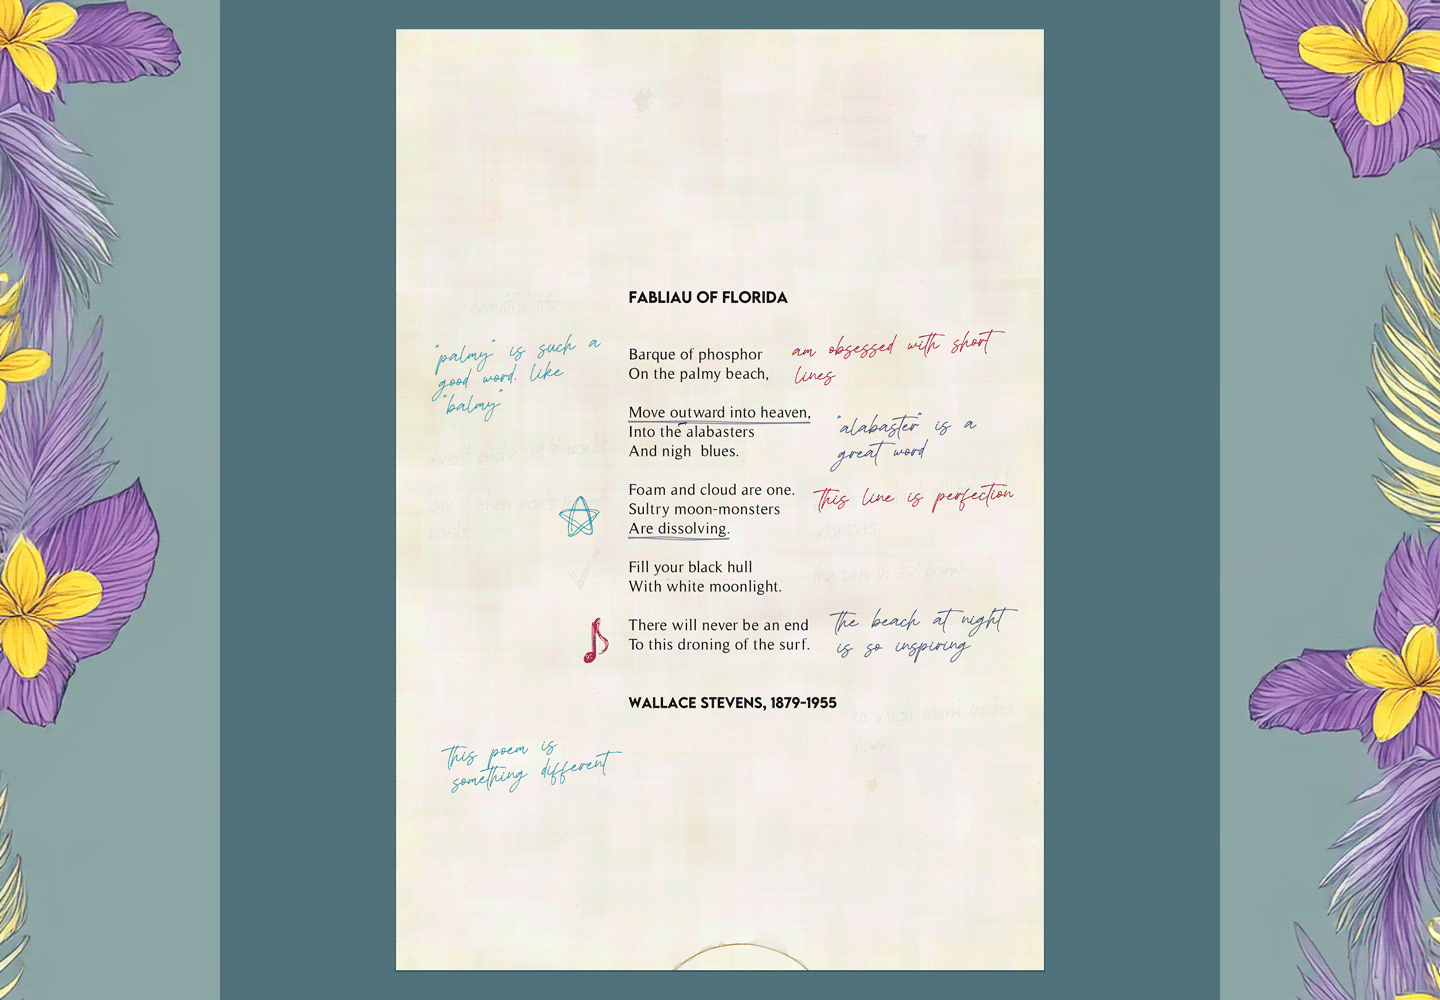 FABLIAU OF FLORIDA
"palmy" is such a
good word. like
"balmy"
Barque of phosphor
On the palmy beach,
am obsessed with short
lines
Move outward into heaven,
Into the alabasters
And nigh blues.
"alabaster" is a
great word
Foam and cloud are one.
Sultry moon-monsters
Are dissolving.
this line is perfection
Fill your black hull
With white moonlight.
the turn in the poem
There will never be an end
To this droning of the surf.
the beach at night
is so inspiring
WALLACE STEVENS, 1879-1955
this poem is
something different